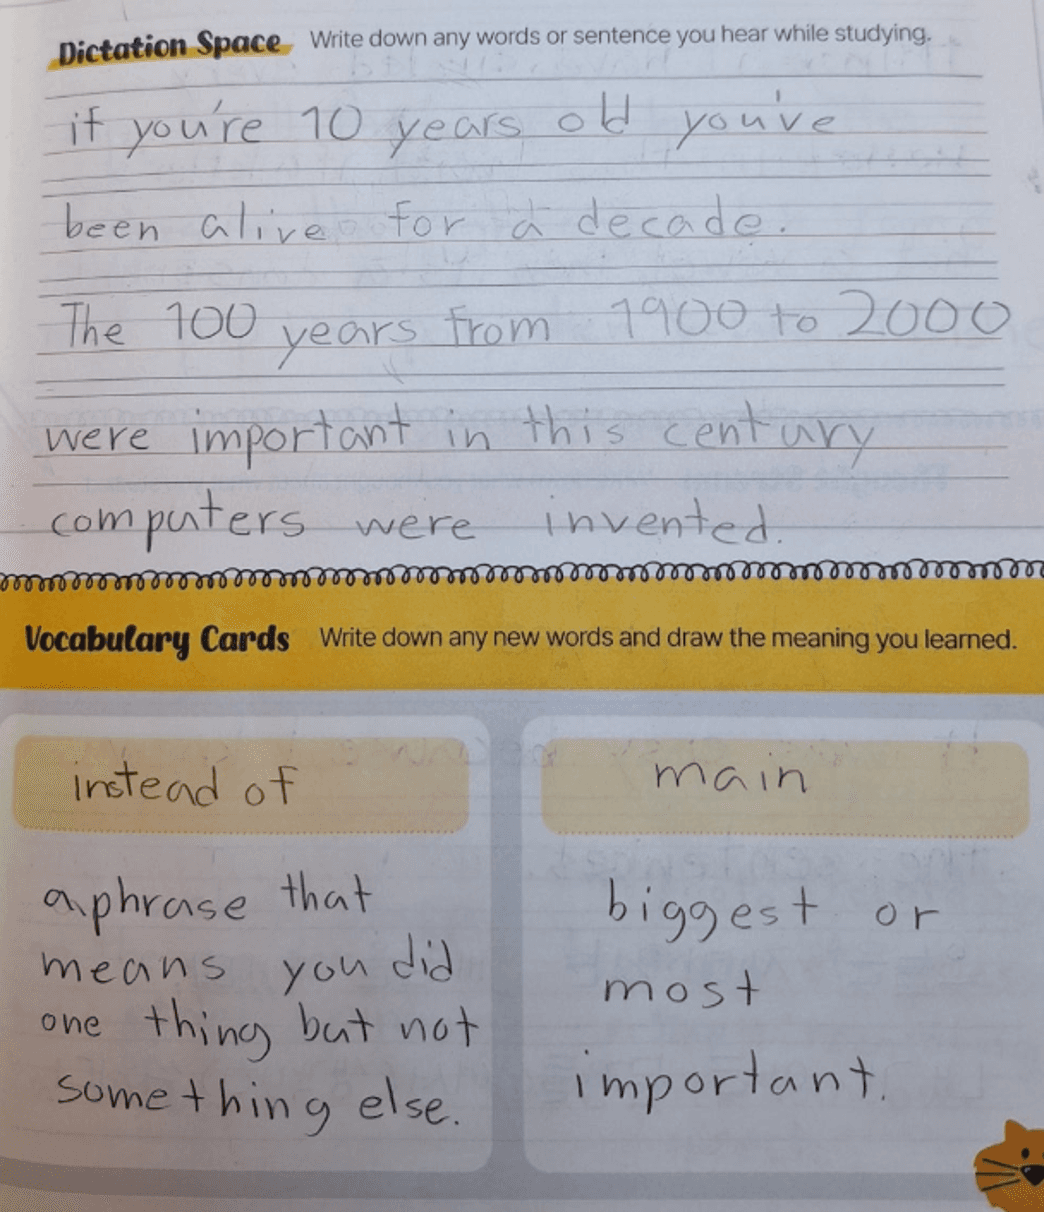 Dictation Space Write down any words or sentence you hear while studying.
if you're 10 years old you've
been alive for a decade.
The 100 years from 1900 to 2000
were important in this century
computers were invented.
Vocabulary Cards Write down any new words and draw the meaning you learned.
instead of
a phrase that
means you did
one thing but not
something else.
main
biggest or
most
important.